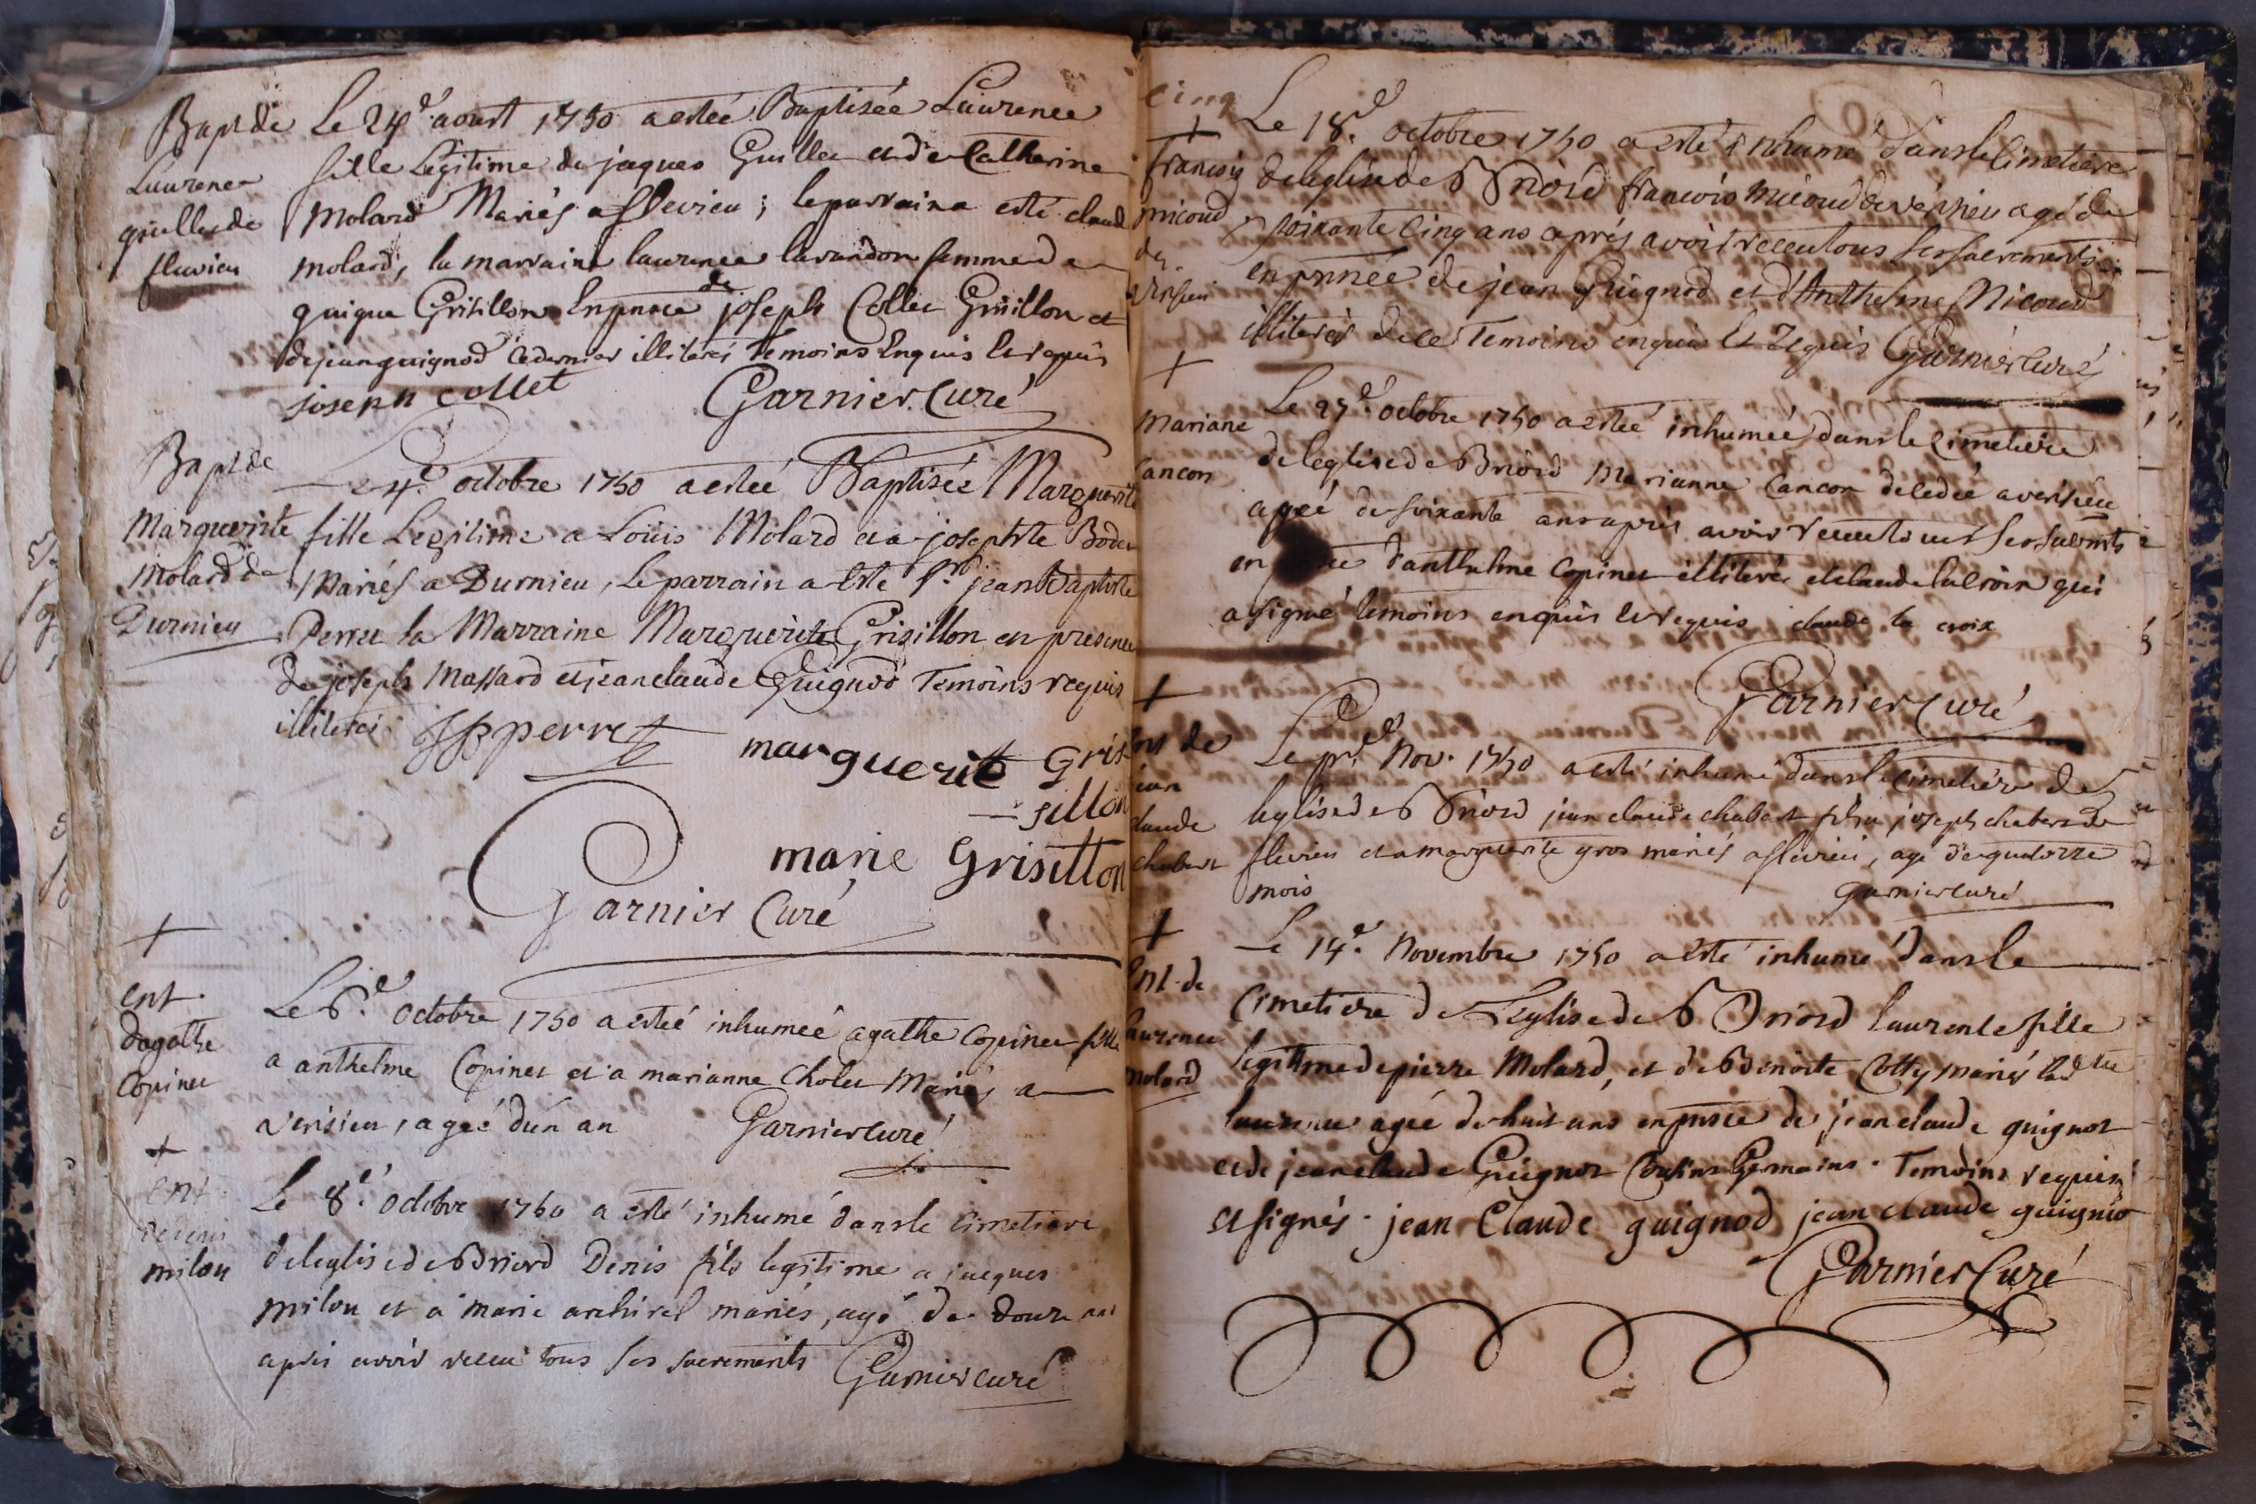 Bapt de
Laurence
guillet de
flevieu
Le 24e aoust 1750 a estée Baptisée Laurence
fille Legitime de jaques Guillet et de Catherine
Molard Mariés a flevieu ; le parrain a esté claud
molard, la marraine laurence lavandon femme de
guigue Grisillon En pnce de joseph Collet Grisillon et
de jean guignod ce dernier illiterés Temoins Enquis et requis
joseph collet Garnier Curé
Bapt de
Marguerite
Molard de
Durnieu
24e octobre 1750 a estée Baptisée Marguerite
fille Legitime a Loüis Molard et a josephte Bodet
Mariés a Durnieu, Le parrain a Esté Sr. jean Baptiste
Perret la Marraine Marguerite Grisillon en presence
de joseph Massard et jean claude Guignod Temoins requis
illiterés JBpperret marguerite Gris
- sillon
marie Grisillon
Garnier Curé
+
ent.
dagathe
Copinet
Le 6e. octobre 1750 a estéé inhumeé agathe Copinet fille
a anthelme Copinet et a marianne Cholet Mariés a
Verisieu, ageé d'un an Garnier curé
+
ent.
de denis
milon
Le 8e. octobre 1750 a esté inhumé dans le cimetiere
de leglise de Briord Denis fils legitime a jacques
milon et a marie archirel mariés, agé de douze ans
aprés avoir receu tous ses sacrements Garnier curé
cinq
+
francois
micoud
de
Verisieu
Le 18e. octobre 1750 a esté inhumé dans le Cimetiere
de leglise de Briord francois micoud de verisieu agé de
soixante Cinq ans aprés avoir receu tous ses sacrements
en pnnce de jean Guignod et d'Anthelme Micoud
illiterés de ce Temoins enquis Et Requis Garnier curé
+
Mariane
Cancon
Le 27e. octobre 1750 a estéé inhumeé dans le Cimetiere
de leglise de Briord Marianne Cancon decedeé a verisieu
ageé de soixante ans aprés avoir receu tous ses sacremts
en d'anthelme Copinet illiteré et claude lacroix qui
a signé temoins enquis et requis claude la croix
Garnier Curé
+
ent de
jean
claude
chabert
Le pr. Nov. 1750 a esté inhumé dans le cimetiére de
leglise de Briord jean claude chabert fils a joseph chabert de
flevieu et a marguerite gros mariés a flevieu, agé de quatorze
mois Garnier curé
+
Ent. de
laurence
molard
Le 14e. Novembre 1750 a esté inhumé dans le
Cimetiere de L'eglise de Briord laurence fille
legitime de pierre Molard, et de Benoite Cotty mariés ladtte
laurence ageé de huit ans en pnsce de jean claude guignot
et de jean claude Guignot Cousins Germains. Temoins requis
et signés. jean Claude guignod jean claude guignio
Garnier Curé